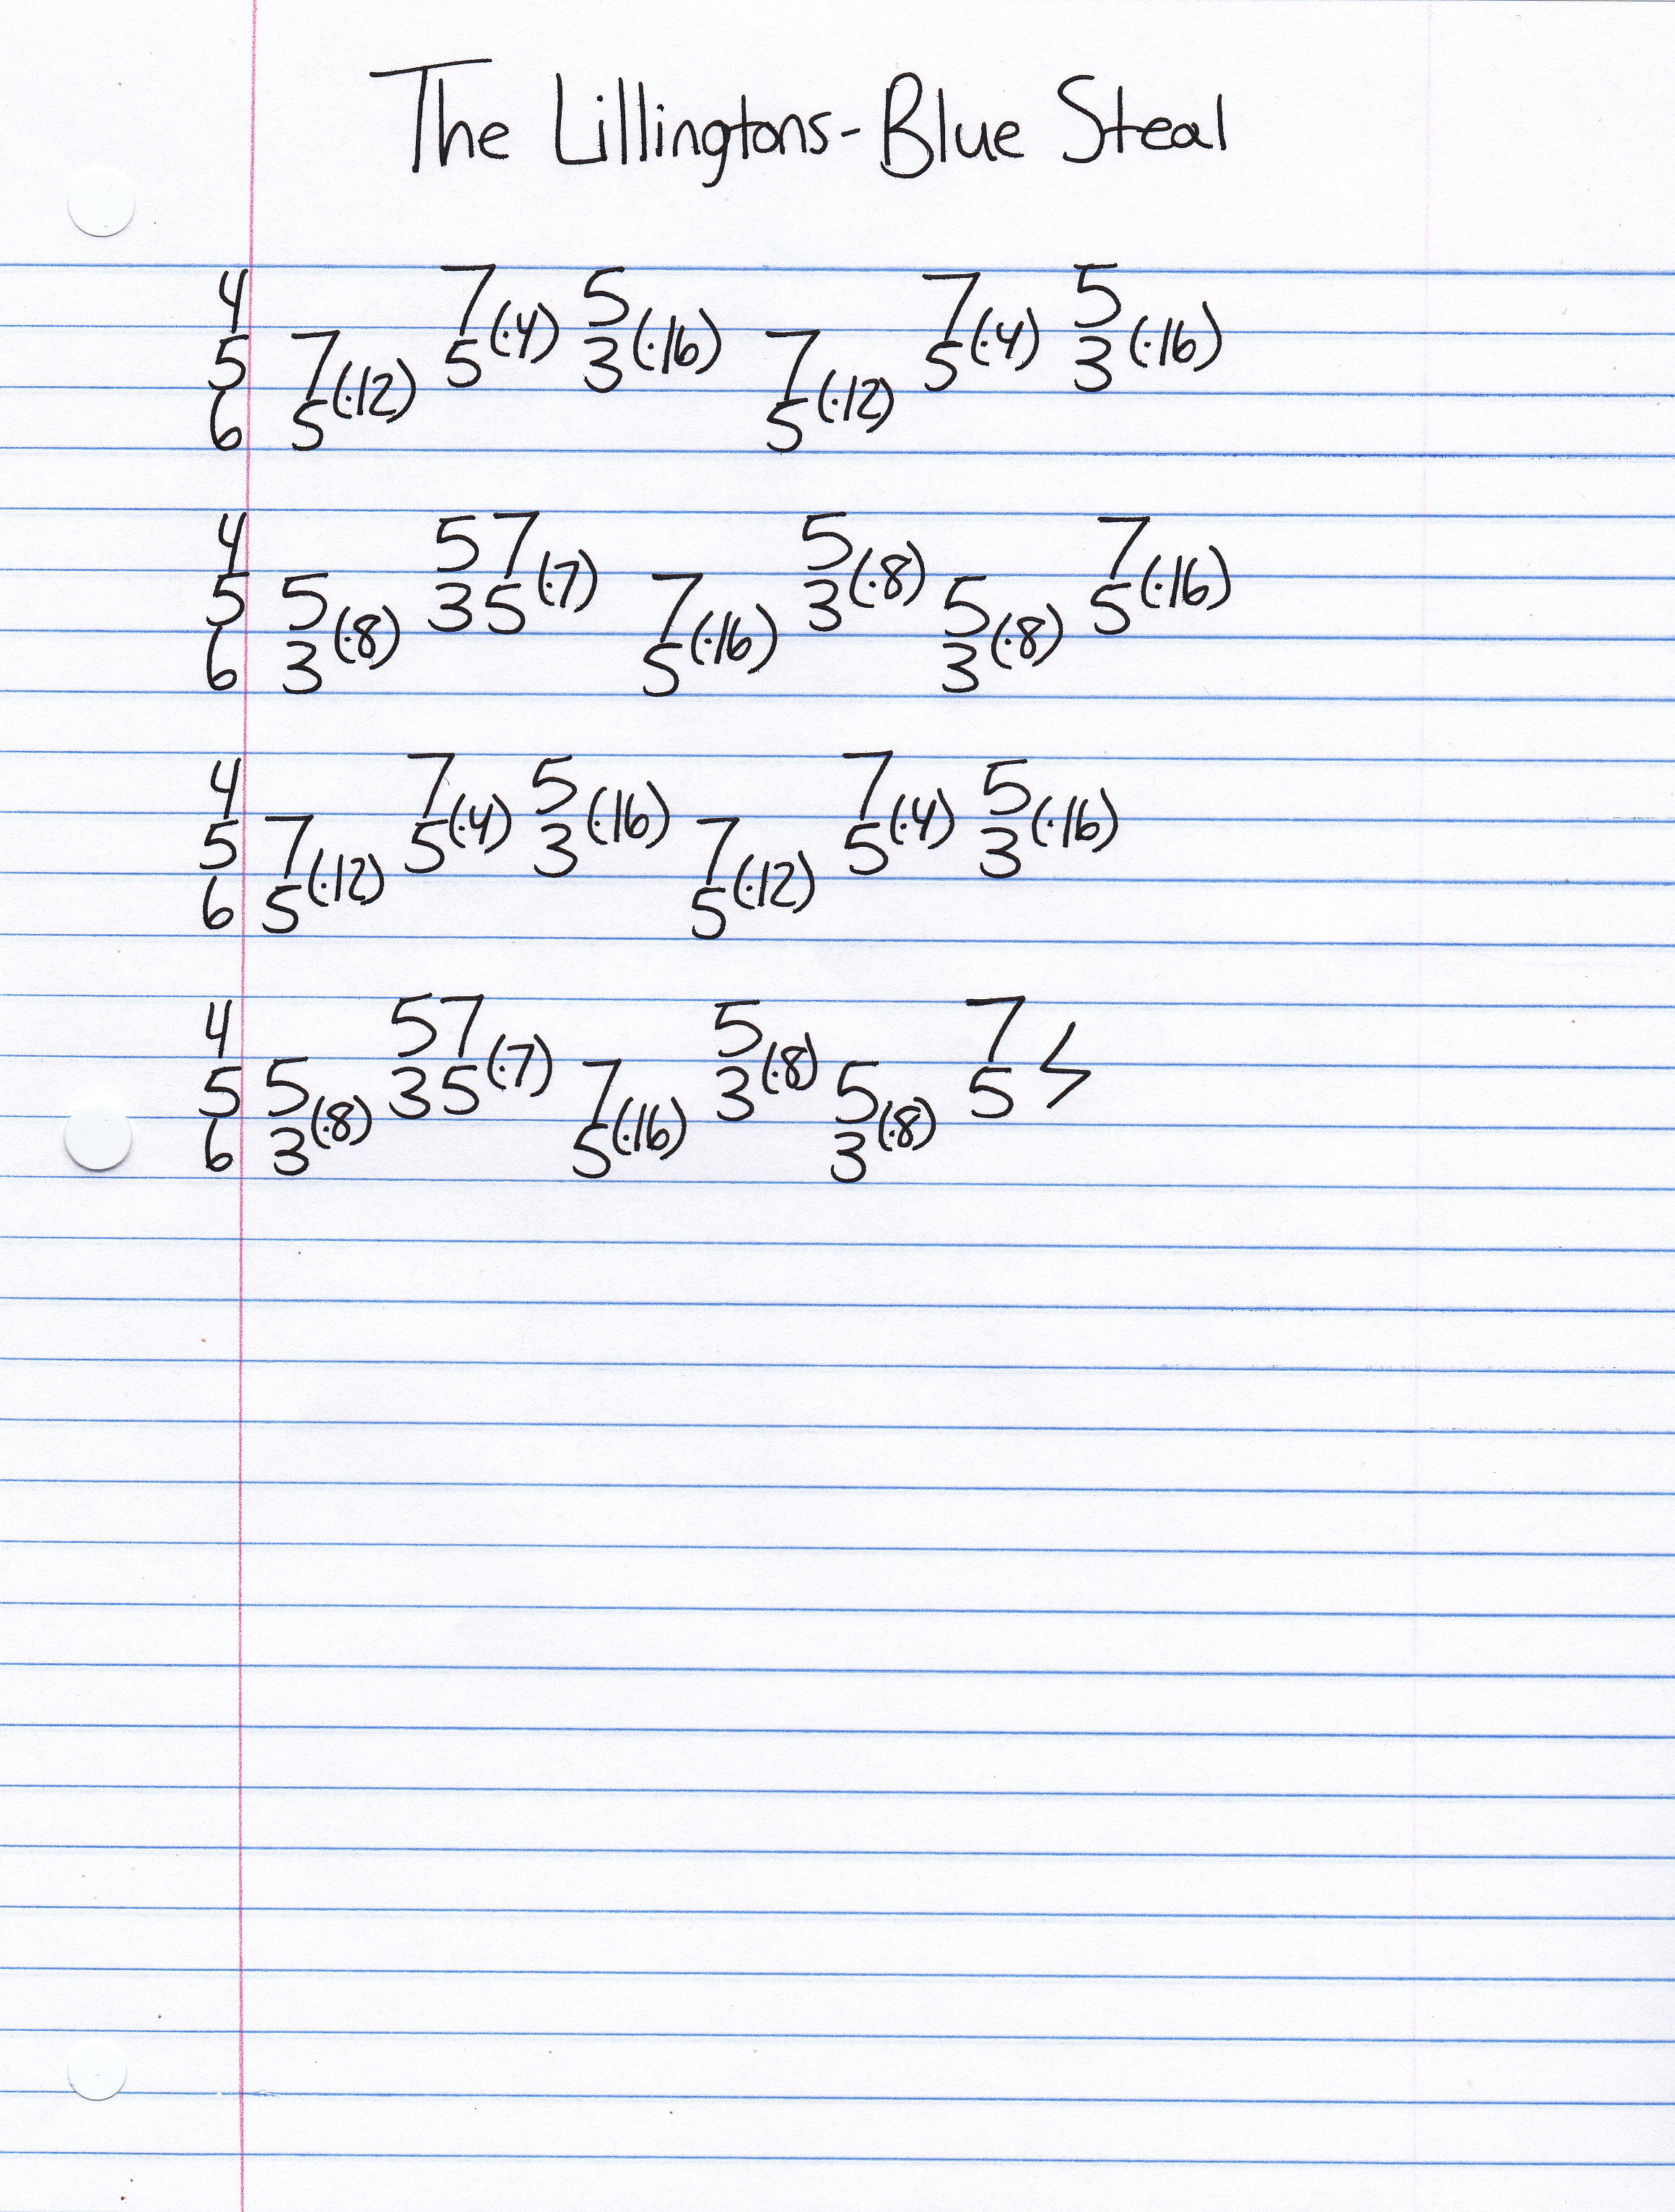 The Lillingtons - Blue Steal
4 7(·4) 5 7(·4) 5
5 7(·12) 5 3(·16) 7(·12) 5 3(·16)
6 5 5
4 5 7 5 7
5 5 3 5(·7) 7 3(·8) 5 5(·16)
6 3(·8) 5(·16) 3(·8)
4 7 5 7 5
5 7 5(·4) 3(·16) 7 5(·4) 3(·16)
6 5(·12) 5(·12)
4 5 7 5 7
5 5 3 5(·7) 7 3(·8) 5 5
6 3(·8) 5(·16) 3(·8)